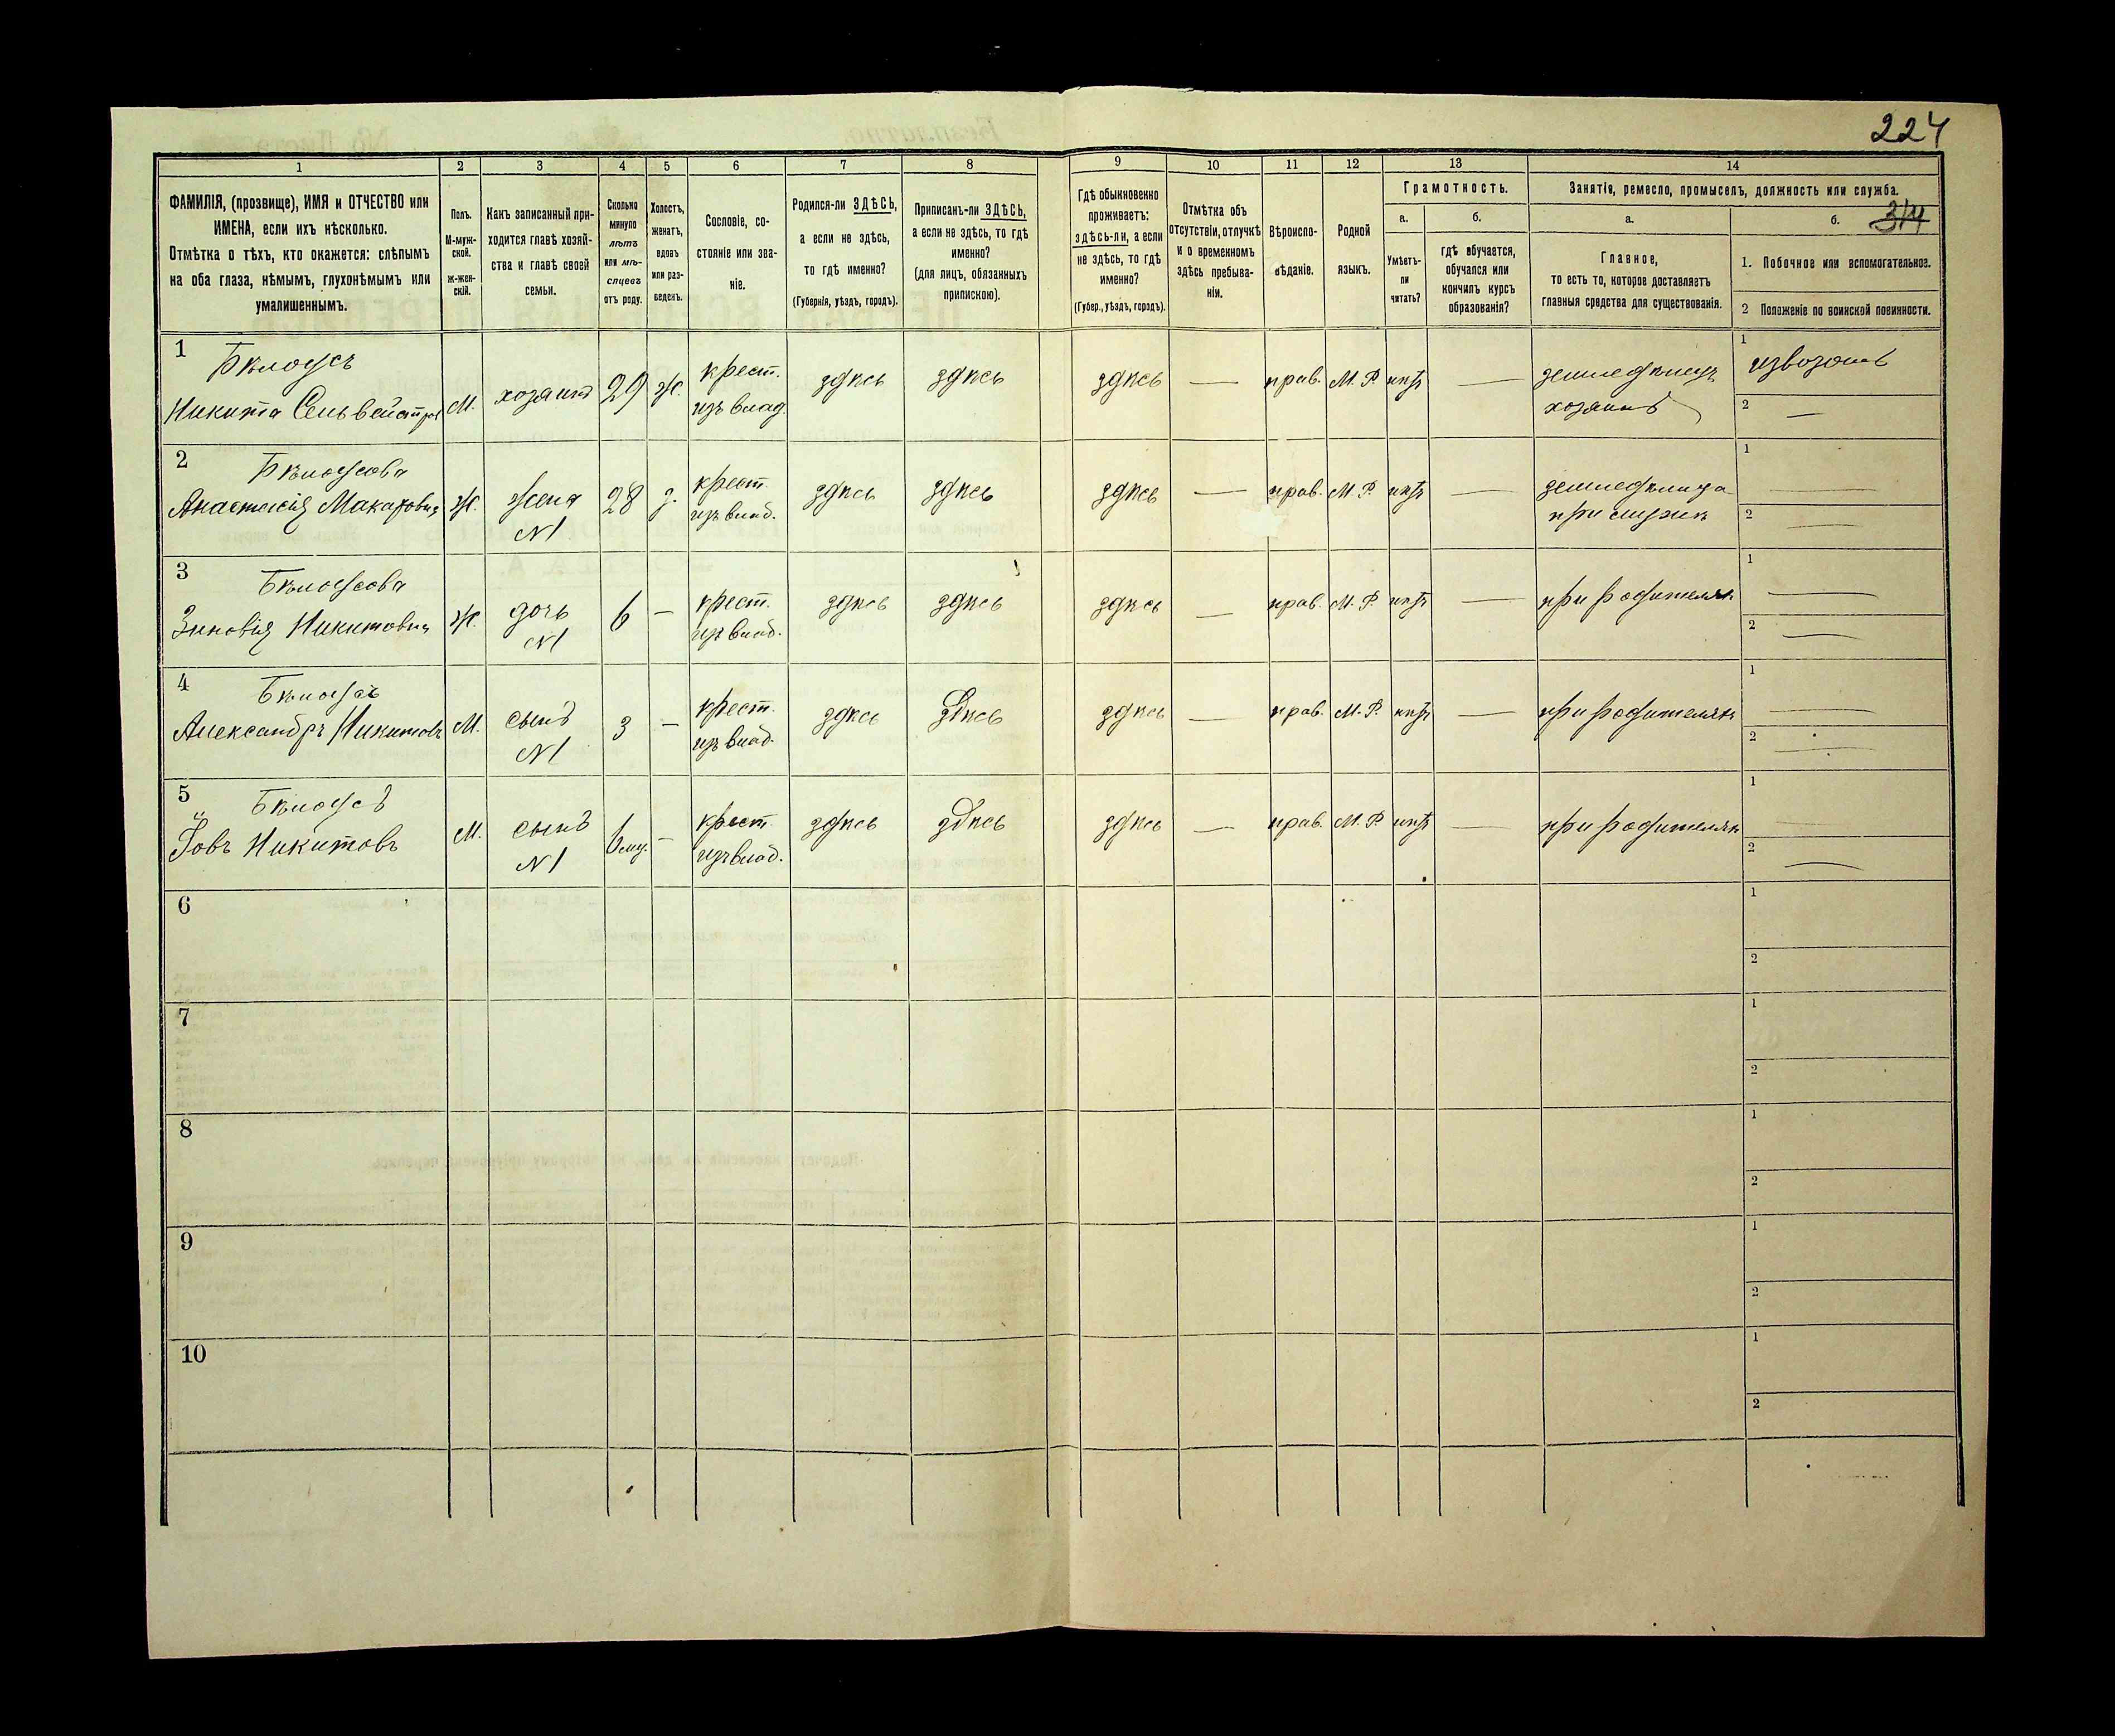 224
1 2 3 4 5 6 7 8 9 10 11 12 13 14
ФАМИЛІЯ, (прозвище), ИМЯ и ОТЧЕСТВО или
ИМЕНА, если ихъ нѣсколько.
Отмѣтка о тѣхъ, кто окажется: слѣпымъ
на оба глаза, нѣмымъ, глухонѣмымъ или
умалишеннымъ.
Полъ.
М-муж-
ской.
ж-жен-
скій.
Какъ записанный при-
ходится главѣ хозяй-
ства и главѣ своей
семьи.
Сколько
минуло
лѣтъ
или мѣ-
сяцевъ
отъ роду.
Холостъ,
женатъ,
вдовъ
или раз-
веденъ.
Сословіе, со-
стояніе или зва-
ніе.
Родился-ли ЗДѢСЬ,
а если не здѣсь,
то гдѣ именно?
(Губернія, уѣздъ, городъ).
Приписанъ-ли ЗДѢСЬ,
а если не здѣсь, то гдѣ
именно?
(для лицъ, обязанныхъ
припискою).
Гдѣ обыкновенно
проживаетъ:
здѣсь-ли, а если
не здѣсь, то гдѣ
именно?
(Губер., уѣздъ, городъ).
Отмѣтка объ
отсутствіи, отлучкѣ
и о временномъ
здѣсь пребыва-
ніи.
Вѣроиспо-
вѣданіе.
Родной
языкъ.
Грамотность.
а. б.
Умѣетъ-
ли
читать?
гдѣ обучается,
обучался или
кончилъ курсъ
образованія?
Занятіе, ремесло, промыселъ, должность или служба.
а. б. 314
Главное,
то есть то, которое доставляетъ
главныя средства для существованія.
1. Побочное или вспомогательное.
2 Положеніе по воинской повинности.
1 Бѣлоусъ
Никита Сельвестров
М. хозяинъ 29 ж.
крест.
изъ влад.
здѣсь здѣсь здѣсь — прав. М.Р. нѣтъ —
земледѣлецъ
хозяинъ
1 извозомъ
2 —
2 Бѣлоусова
Анастасія Макаровна
ж. жена
N1
28 з.
крест.
изъ влад.
здѣсь здѣсь здѣсь — прав. М.Р. нѣтъ —
земледѣлица
при мужѣ
1 —
2 —
3 Бѣлоусова
Зиновія Никитовна
ж. дочь
N1
6 —
крест.
изъ влад.
здѣсь здѣсь здѣсь — прав. М.Р. нѣтъ —
при родителяхъ
1 —
2 —
4 Бѣлоусъ
Александръ Никитовъ
М. сынъ
N1
3 —
крест.
изъ влад.
здѣсь здѣсь здѣсь — прав. М.Р. нѣтъ —
при родителяхъ
1 —
2 —
5 Бѣлоусъ
Іовъ Никитовъ
М. сынъ
N1
6 мц. —
крест.
изъ влад.
здѣсь здѣсь здѣсь — прав. М.Р. нѣтъ —
при родителяхъ
1 —
2 —
6 1
2
7 1
2
8 1
2
9 1
2
10 1
2